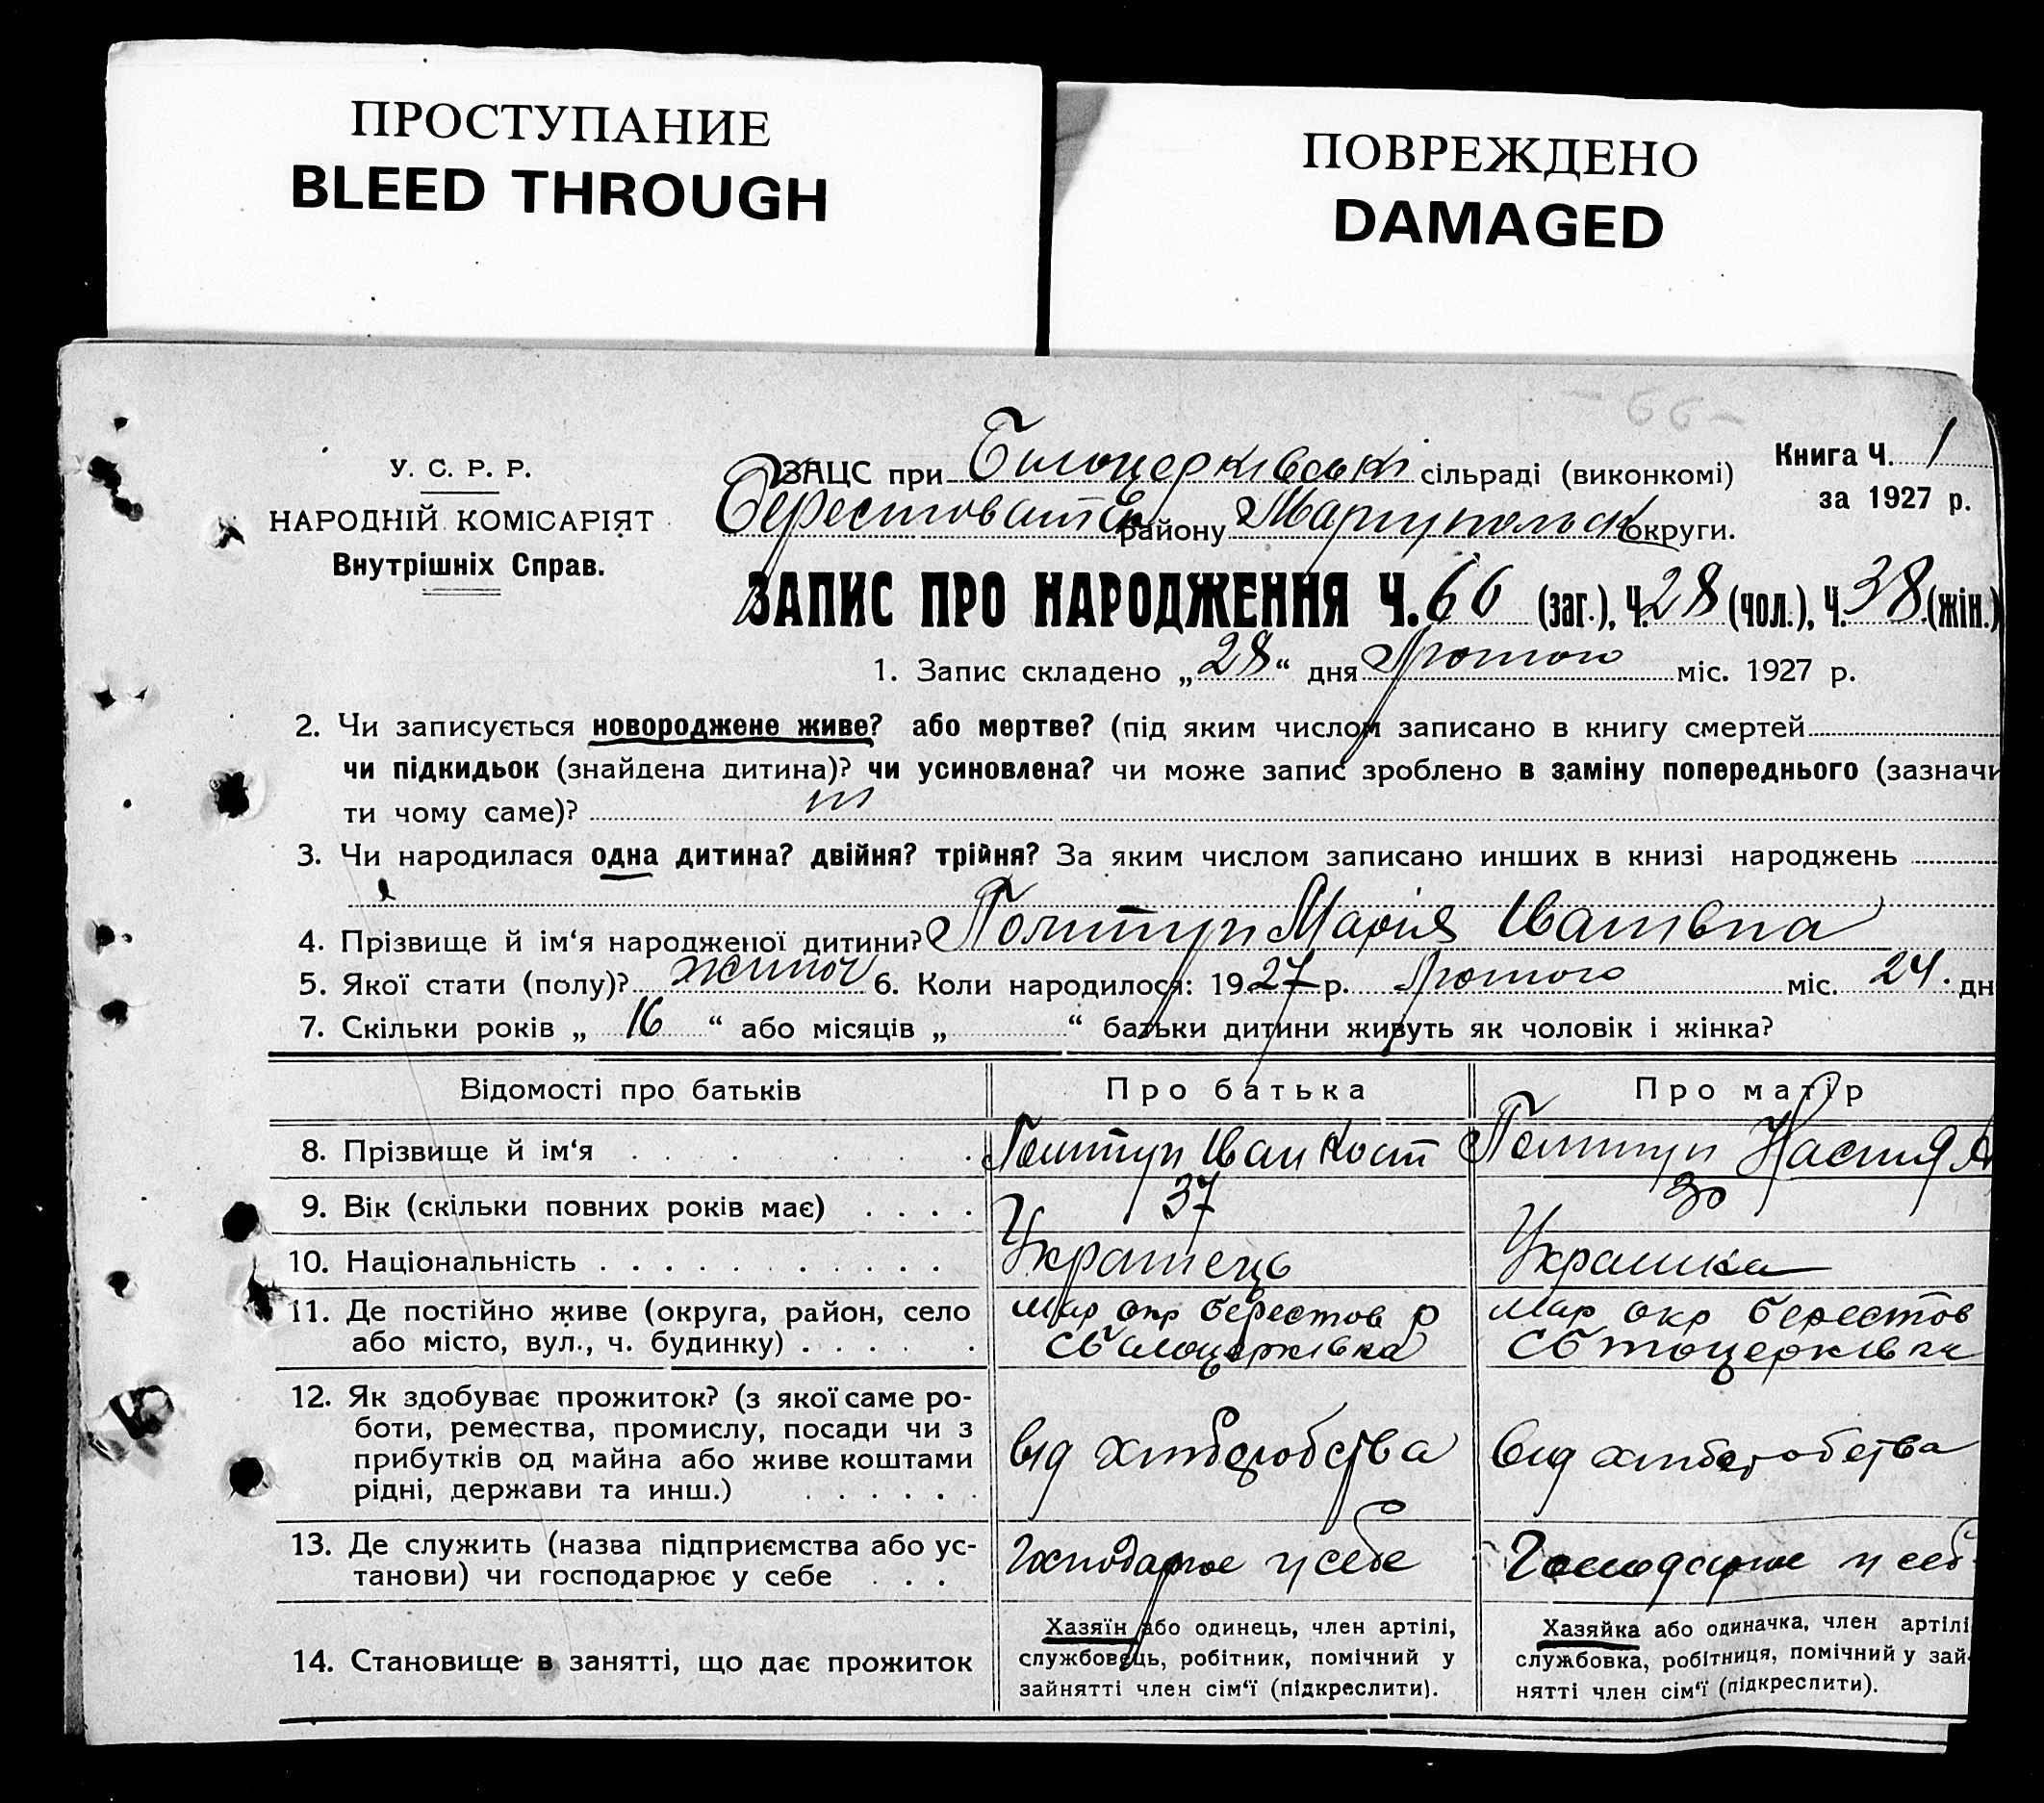 ПРОСТУПАНИЕ
BLEED THROUGH
ПОВРЕЖДЕНО
DAMAGED
- 66 -
У. С. Р. Р.
НАРОДНІЙ КОМІСАРІЯТ
Внутрішніх Справ.
ЗАЦС при Білоцерківські сільраді (виконкомі)
Книга Ч. 1
за 1927 р.
району Маріупольск округи.
ЗАПИС ПРО НАРОДЖЕННЯ Ч. 66 (заг.), Ч. 28 (чол.), Ч. 38 (жін.)
1. Запис складено „ 28 “ дня Лютого міс. 1927 р.
2. Чи записується новороджене живе? або мертве? (під яким числом записано в книгу смертей
чи підкидьок (знайдена дитина)? чи усиновлена? чи може запис зроблено в заміну попереднього (зазначи
ти чому саме)?
3. Чи народилася одна дитина? двійня? трійня? За яким числом записано инших в книзі народжень
4. Прізвище й ім‘я народженої дитини? Марія Іванівна
5. Якої стати (полу)? жіноч 6. Коли народилося: 1927 р. Лютого міс. 24. дн
7. Скільки років „ 16 “ або місяців „ “ батьки дитини живуть як чоловік і жінка?
Відомості про батьків Про батька Про матір
8. Прізвище й ім‘я . . . . . . . Іван Кост Настя
9. Вік (скільки повних років має) . . . . 37 30
10. Національність . . . . . . . . . . . Українець Українка
11. Де постійно живе (округа, район, село Мар окр Берестов р Мар окр Берестов
або місто, вул., ч. будинку) . . . . . . С Білоцерківка С Білоцерківка
12. Як здобуває прожиток? (з якої саме ро-
боти, ремества, промислу, посади чи з
прибутків од майна або живе коштами від хліборобства від хліборобства
рідні, держави та инш.) . . . . . .
13. Де служить (назва підприємства або ус- Господарює у себе Господарює у себ
танови) чи господарює у себе . . .
14. Становище в занятті, що дає прожиток
Хазяїн або одинець, член артілі,
службовець, робітник, помічний у
зайнятті член сім‘ї (підкреслити).
Хазяйка або одиначка, член артілі
службовка, робітниця, помічний у зай-
нятті член сім‘ї (підкреслити).